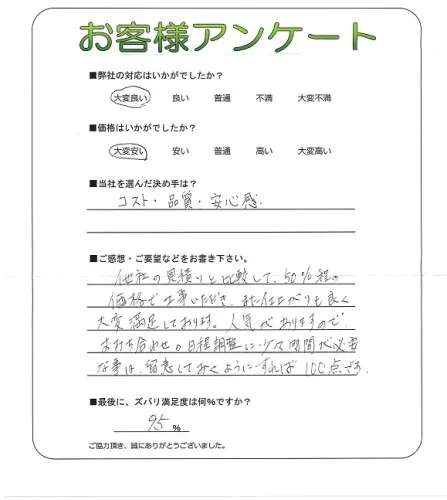 お客様アンケート
■弊社の対応はいかがでしたか?
大変良い 良い 普通 不満 大変不満
■価格はいかがでしたか?
大変安い 安い 普通 高い 大変高い
■当社を選んだ決め手は?
コスト・品質・安心感.
■ご感想・ご要望などをお書き下さい。
他社の見積りと比較して、50%程の
価格で工事いただき、また仕上がりも良く
大変満足しております。人気がありますので
お打ち合わせや日程調整に少々時間が必要
な事は、留意しておくようにすれば100点です.
■最後に、ズバリ満足度は何%ですか?
95 %
ご協力頂き、誠にありがとうございました。